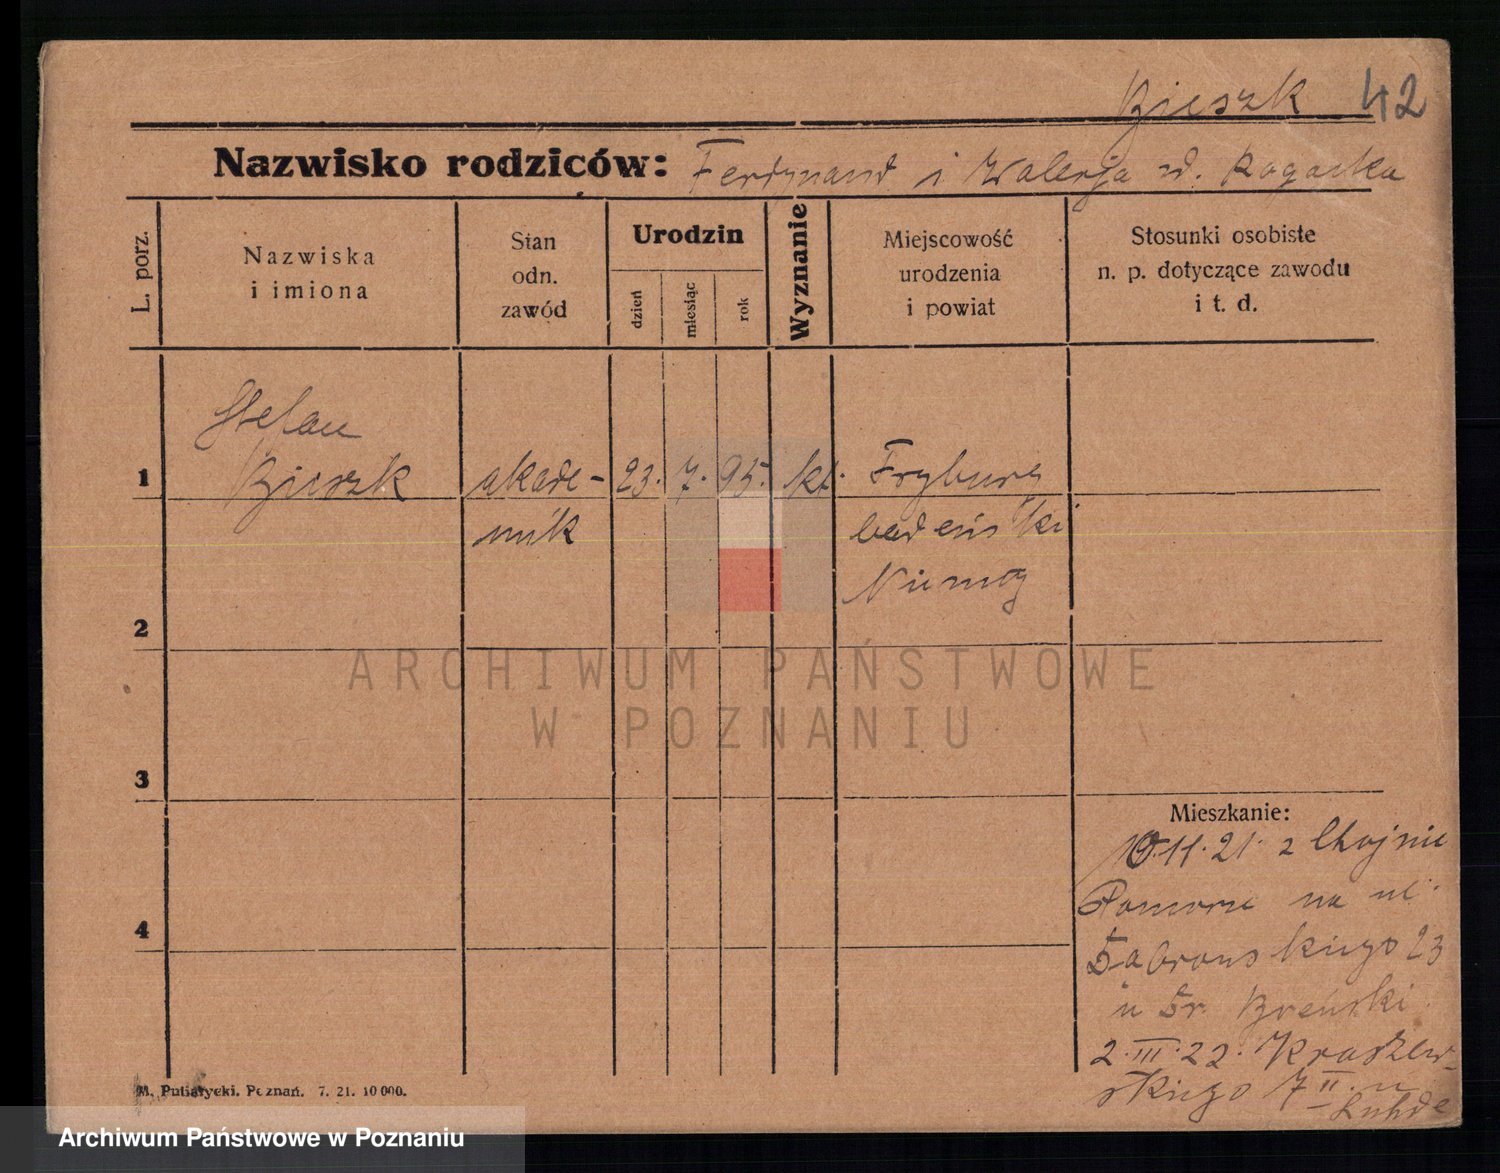 Bieszk 42
Nazwisko rodziców: Ferdynand i Walerja
L. porz.
Nazwiska
i imiona
Stan
odn.
zawód
Urodzin
dzień
miesiąc
rok
Wyznanie
Miejscowość
urodzenia
i powiat
Stosunki osobiste
n. p. dotyczące zawodu
i t. d.
Stefan
1 Bieszk akade- 23. 7. 95. kt. Fryburg
mik badeński
Niemcy
2
ARCHIWUM PAŃSTWOWE
W POZNANIU
3
Mieszkanie:
11. 21. z Chojnic
Pomorze na ul.
Dąbrowskiego 23
u Dr.
4
2. III. 22. Kraszew-
skiego 7 II. u
M. Putiatycki. Poznań. 7. 21. 10 000.
Archiwum Państwowe w Poznaniu